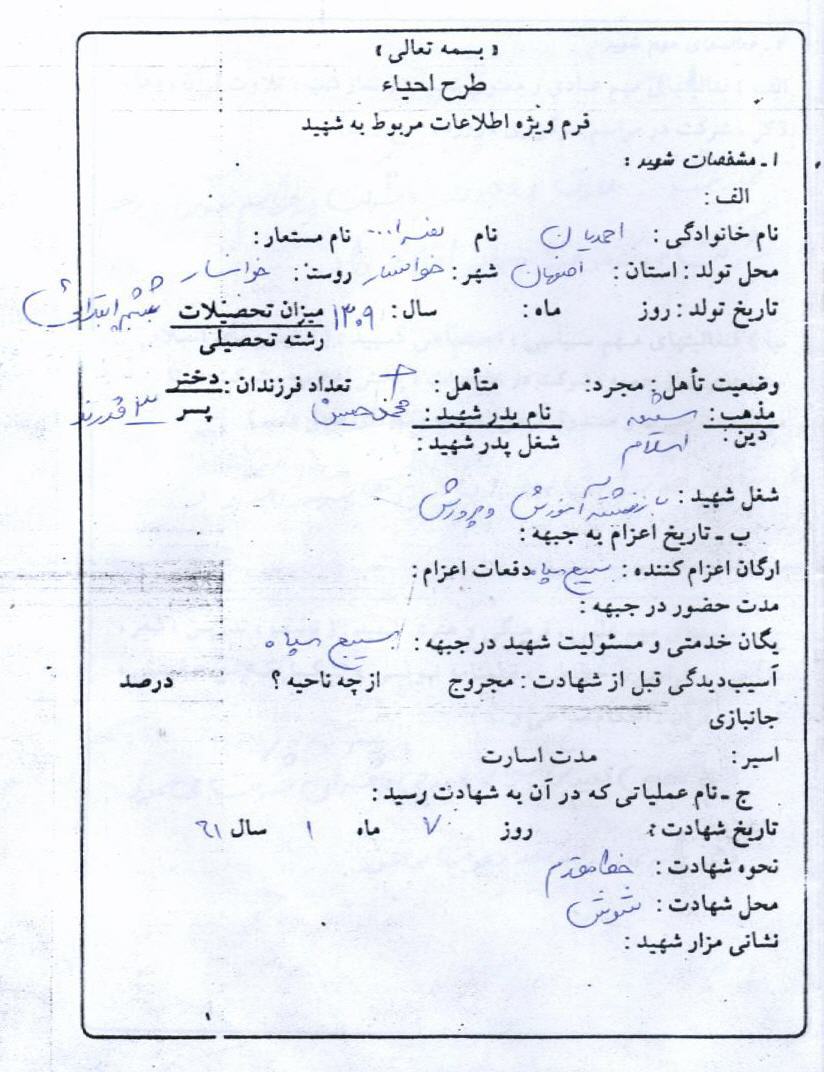 « بسمه تعالی »
طرح احیاء
فرم ویژه اطلاعات مربوط به شهید
۱ ـ مشخصات شهید :
الف :
نام خانوادگی : احمدیان نام نام مستعار :
محل تولد : استان : اصفهان شهر : خوانسار روستا : خوانسار
تاریخ تولد : روز ماه : سال : ۱۳۰۹ میزان تحصیلات ششم ابتدائی
رشته تحصیلی
وضعیت تأهل : مجرد : متأهل : + تعداد فرزندان : دختر
پسر ۳ فرزند
مذهب : شیعه نام پدر شهید : محمدحسین
دین : اسلام شغل پدر شهید :
شغل شهید : بازنشسته آموزش و پرورش
ب ـ تاریخ اعزام به جبهه :
ارگان اعزام کننده : بسیج سپاه دفعات اعزام :
مدت حضور در جبهه :
یگان خدمتی و مسئولیت شهید در جبهه : بسیج سپاه
آسیب‌دیدگی قبل از شهادت : مجروح از چه ناحیه ؟ درصد
جانبازی
اسیر : مدت اسارت
ج ـ نام عملیاتی که در آن به شهادت رسید :
تاریخ شهادت : روز ۷ ماه ۱ سال ۶۱
نحوه شهادت : خط مقدم
محل شهادت : شوش
نشانی مزار شهید :
۱